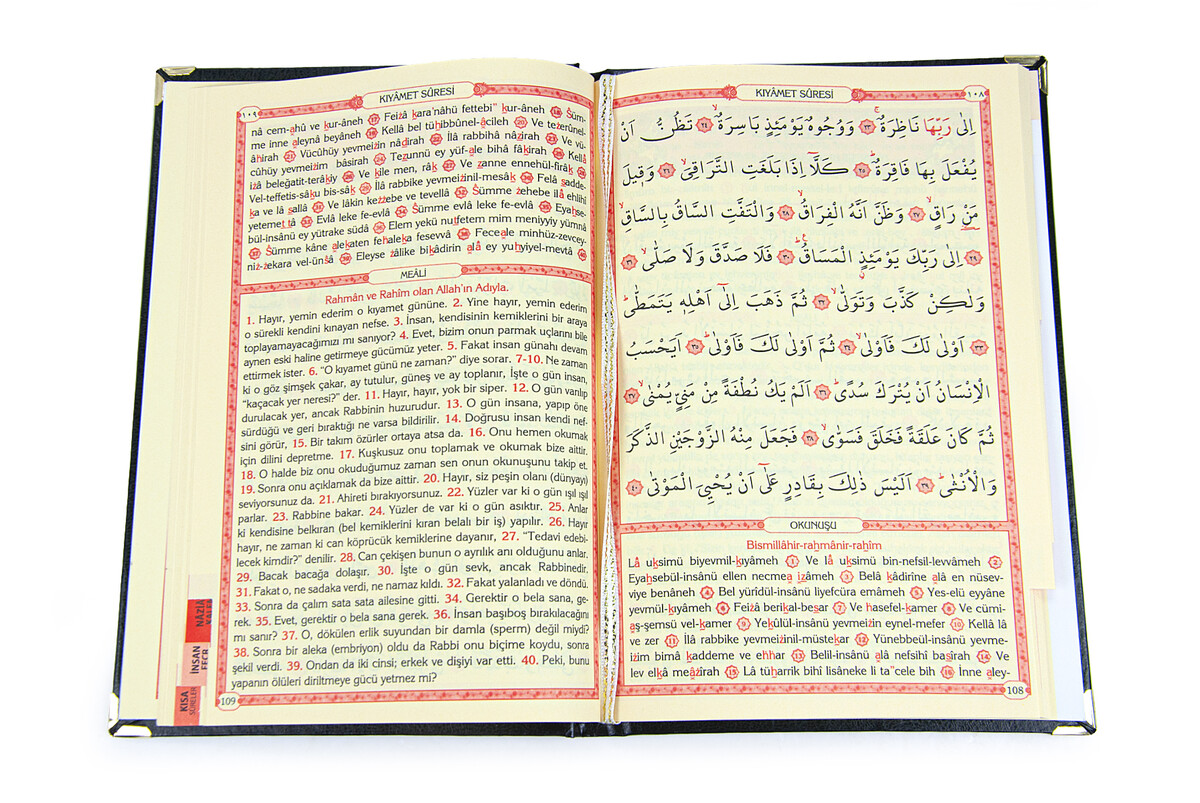 KIYÂMET SÛRESİ
١٠٨
اِلٰى رَبِّهَا نَاظِرَةٌۚ ﴿٢٣﴾ وَوُجُوهٌ يَوْمَئِذٍ بَاسِرَةٌۙ ﴿٢٤﴾ تَظُنُّ اَنْ
يُفْعَلَ بِهَا فَاقِرَةٌۜ ﴿٢٥﴾ كَلَّٓا اِذَا بَلَغَتِ التَّرَاقِيَۙ ﴿٢٦﴾ وَق۪يلَ
مَنْ رَاقٍۙ ﴿٢٧﴾ وَظَنَّ اَنَّهُ الْفِرَاقُۙ ﴿٢٨﴾ وَالْتَفَّتِ السَّاقُ بِالسَّاقِۙ
﴿٢٩﴾ اِلٰى رَبِّكَ يَوْمَئِذٍۨ الْمَسَاقُۜ ﴿٣٠﴾ فَلَا صَدَّقَ وَلَا صَلّٰىۙ ﴿٣١﴾
وَلٰكِنْ كَذَّبَ وَتَوَلّٰىۙ ﴿٣٢﴾ ثُمَّ ذَهَبَ اِلٰٓى اَهْلِه۪ يَتَمَطّٰىۜ
﴿٣٣﴾ اَوْلٰى لَكَ فَاَوْلٰىۙ ﴿٣٤﴾ ثُمَّ اَوْلٰى لَكَ فَاَوْلٰىۜ ﴿٣٥﴾ اَيَحْسَبُ
الْاِنْسَانُ اَنْ يُتْرَكَ سُدًىۜ ﴿٣٦﴾ اَلَمْ يَكُ نُطْفَةً مِنْ مَنِيٍّ يُمْنٰىۙ ﴿٣٧﴾
ثُمَّ كَانَ عَلَقَةً فَخَلَقَ فَسَوّٰىۙ ﴿٣٨﴾ فَجَعَلَ مِنْهُ الزَّوْجَيْنِ الذَّكَرَ
وَالْاُنْثٰىۜ ﴿٣٩﴾ اَلَيْسَ ذٰلِكَ بِقَادِرٍ عَلٰٓى اَنْ يُحْيِيَ الْمَوْتٰى ﴿٤٠﴾
OKUNUŞU
Bismillâhir-rahmânir-rahîm
Lâ uksimü biyevmil-kıyâmeh 1 Ve lâ uksimü bin-nefsil-levvâmeh 2
Eyahsebül-insânü ellen necmea izâmeh 3 Belâ kâdirîne alâ en nüsev-
viye benâneh 4 Bel yürîdül-insânü liyefcüra emâmeh 5 Yes-elü eyyâne
yevmül-kıyâmeh 6 Feizâ berikal-besar 7 Ve hasefel-kamer 8 Ve cümi-
aş-şemsü vel-kamer 9 Yekûlül-insânü yevmeizin eynel-mefer 10 Kellâ lâ
ve zer 11 İlâ rabbike yevmeizinil-müstekar 12 Yünebbeül-insânü yevme-
izim bimâ kaddeme ve ehhar 13 Belil-insânü alâ nefsihî basîrah 14 Ve
lev elkâ meâzîrah 15 Lâ tüharrik bihî lisâneke li ta"cele bih 16 İnne aley-
108
KIYÂMET SÛRESİ
١٠٩
nâ cem-ahû ve kur-âneh 17 Feizâ kara'nâhü fettebi" kur-âneh 18 Süm-
me inne aleynâ beyâneh 19 Kellâ bel tühibbûnel-âcileh 20 Ve tezerûnel-
âhirah 21 Vücûhüy yevmeizin nâdirah 22 İlâ rabbihâ nâzirah 23 Ve vü-
cûhüy yevmeizim bâsirah 24 Tezunnü ey yüf-ale bihâ fâkirah 25 Kellâ
izâ beleğatit-terâkiy 26 Ve kîle men, râk 27 Ve zanne ennehül-firâk 28
Vel-teffetis-sâku bis-sâk 29 İlâ rabbike yevmeizinil-mesâk 30 Felâ sadde-
ka ve lâ sallâ 31 Ve lâkin kezzebe ve tevellâ 32 Sümme zehebe ilâ ehlihî
yetemettâ 33 Evlâ leke fe-evlâ 34 Sümme evlâ leke fe-evlâ 35 Eyahse-
bül-insânü ey yütrake südâ 36 Elem yekü nutfetem mim meniyyiy yümnâ
37 Sümme kâne alekaten fehaleka fesevvâ 38 Feceale minhüz-zevcey-
niz-zekara vel-ünsâ 39 Eleyse zâlike bikâdirin alâ ey yuhyiyel-mevtâ 40
MEÂLİ
Rahmân ve Rahîm olan Allah'ın Adıyla.
1. Hayır, yemin ederim o kıyamet gününe. 2. Yine hayır, yemin ederim
o sürekli kendini kınayan nefse. 3. İnsan, kendisinin kemiklerini bir araya
toplayamayacağımızı mı sanıyor? 4. Evet, bizim onun parmak uçlarını bile
aynen eski haline getirmeye gücümüz yeter. 5. Fakat insan günahı devam
ettirmek ister. 6. "O kıyamet günü ne zaman?" diye sorar. 7-10. Ne zaman
ki o göz şimşek çakar, ay tutulur, güneş ve ay toplanır, İşte o gün insan,
"kaçacak yer neresi?" der. 11. Hayır, hayır, yok bir siper. 12. O gün varılıp
durulacak yer, ancak Rabbinin huzurudur. 13. O gün insana, yapıp öne
sürdüğü ve geri bıraktığı ne varsa bildirilir. 14. Doğrusu insan kendi nef-
sini görür, 15. Bir takım özürler ortaya atsa da. 16. Onu hemen okumak
için dilini depretme. 17. Kuşkusuz onu toplamak ve okumak bize aittir.
18. O halde biz onu okuduğumuz zaman sen onun okunuşunu takip et.
19. Sonra onu açıklamak da bize aittir. 20. Hayır, siz peşin olanı (dünyayı)
seviyorsunuz da. 21. Ahireti bırakıyorsunuz. 22. Yüzler var ki o gün ışıl ışıl
parlar. 23. Rabbine bakar. 24. Yüzler de var ki o gün asıktır. 25. Anlar
ki kendisine belkıran (bel kemiklerini kıran belalı bir iş) yapılır. 26. Hayır
hayır, ne zaman ki can köprücük kemiklerine dayanır, 27. "Tedavi edebi-
lecek kimdir?" denilir. 28. Can çekişen bunun o ayrılık anı olduğunu anlar.
29. Bacak bacağa dolaşır. 30. İşte o gün sevk, ancak Rabbinedir.
31. Fakat o, ne sadaka verdi, ne namaz kıldı. 32. Fakat yalanladı ve döndü.
33. Sonra da çalım sata sata ailesine gitti. 34. Gerektir o bela sana, ge-
rek. 35. Evet, gerektir o bela sana gerek. 36. İnsan başıboş bırakılacağını
mı sanır? 37. O, dökülen erlik suyundan bir damla (sperm) değil miydi?
38. Sonra bir aleka (embriyon) oldu da Rabbi onu biçime koydu, sonra
şekil verdi. 39. Ondan da iki cinsi; erkek ve dişiyi var etti. 40. Peki, bunu
yapanın ölüleri diriltmeye gücü yetmez mi?
109
NÂZİA
İNSAN
FECR
KISA
SÛRELER